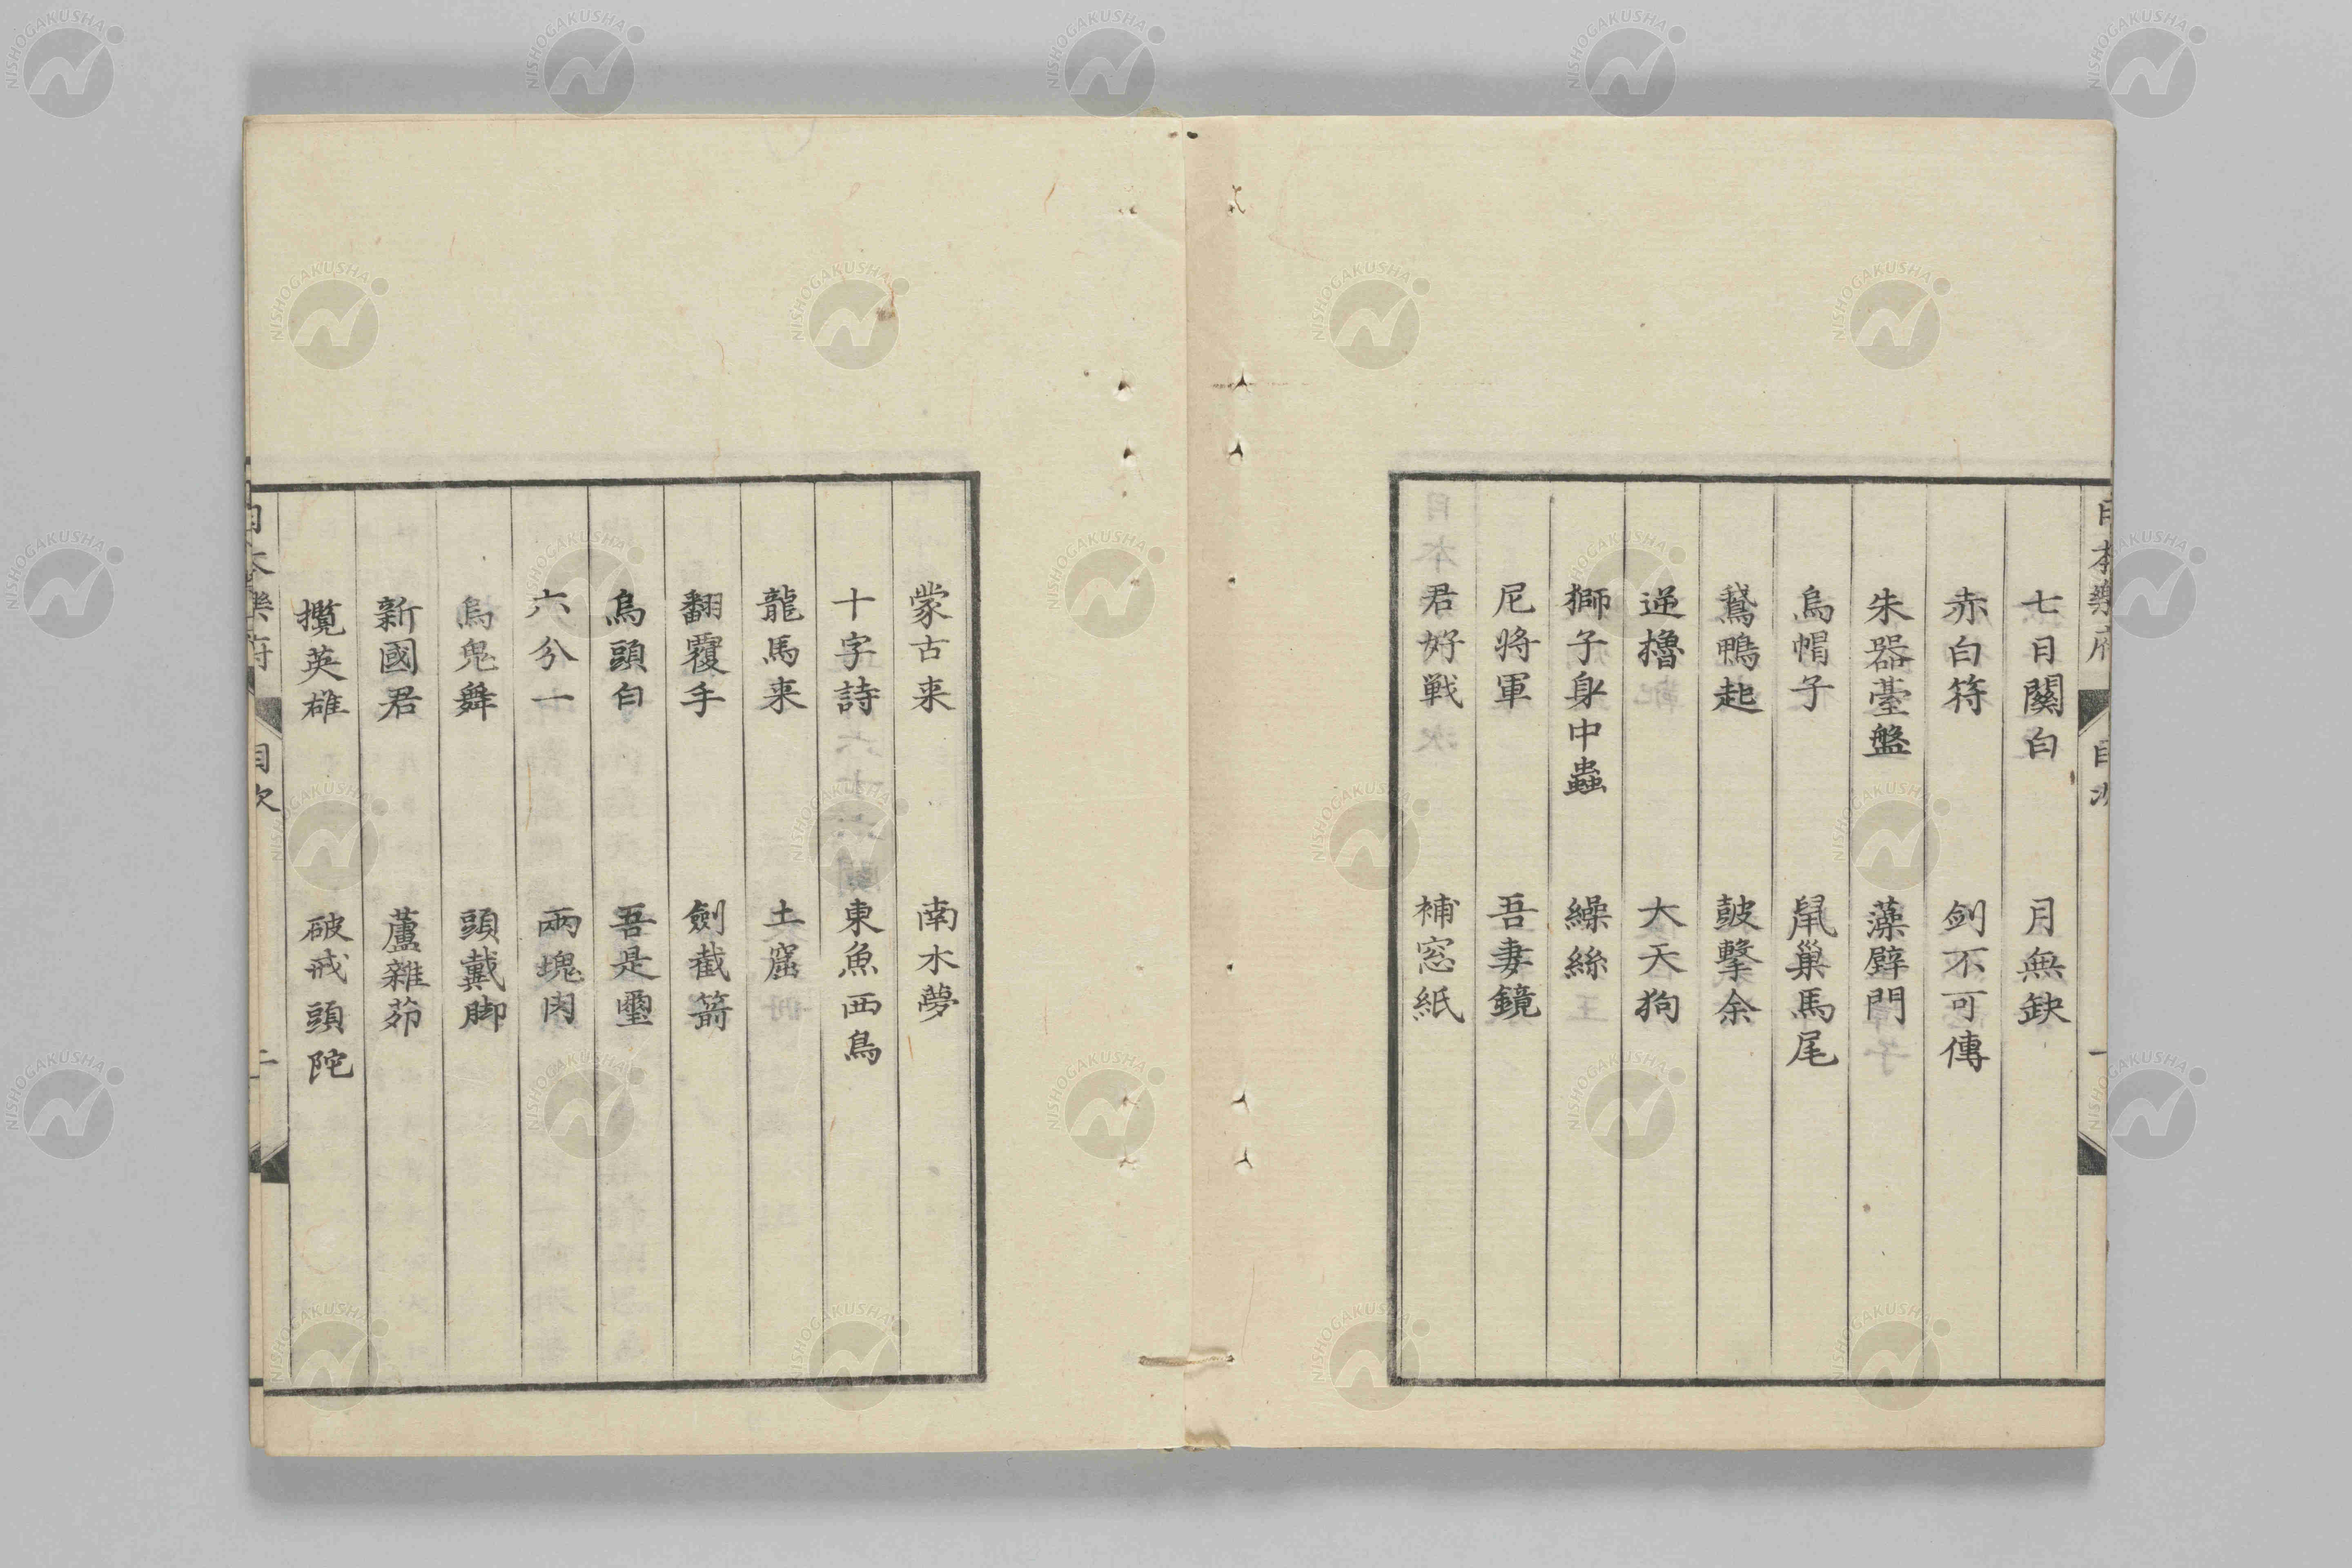 七日關白　月無缺
赤白符　剑不可傳
朱器臺盤　藻壁門
烏帽子　鼠巢馬尾
鵞鴨起　皷擊余
逆櫓　大天狗
獅子身中蟲　繰絲
尼將軍　吾妻鏡
君好戦　補窓紙
蒙古来　南木夢
十字詩　東魚西鳥
龍馬来　土窟
翻覆手　劍截箭
烏頭白　吾是璽
六分一　兩塊肉
烏鬼舞　頭戴脚
新國君　蘆雜茆
攬英雄　破戒頭陀
日本樂府　目次　二
NISHOGAKUSHA